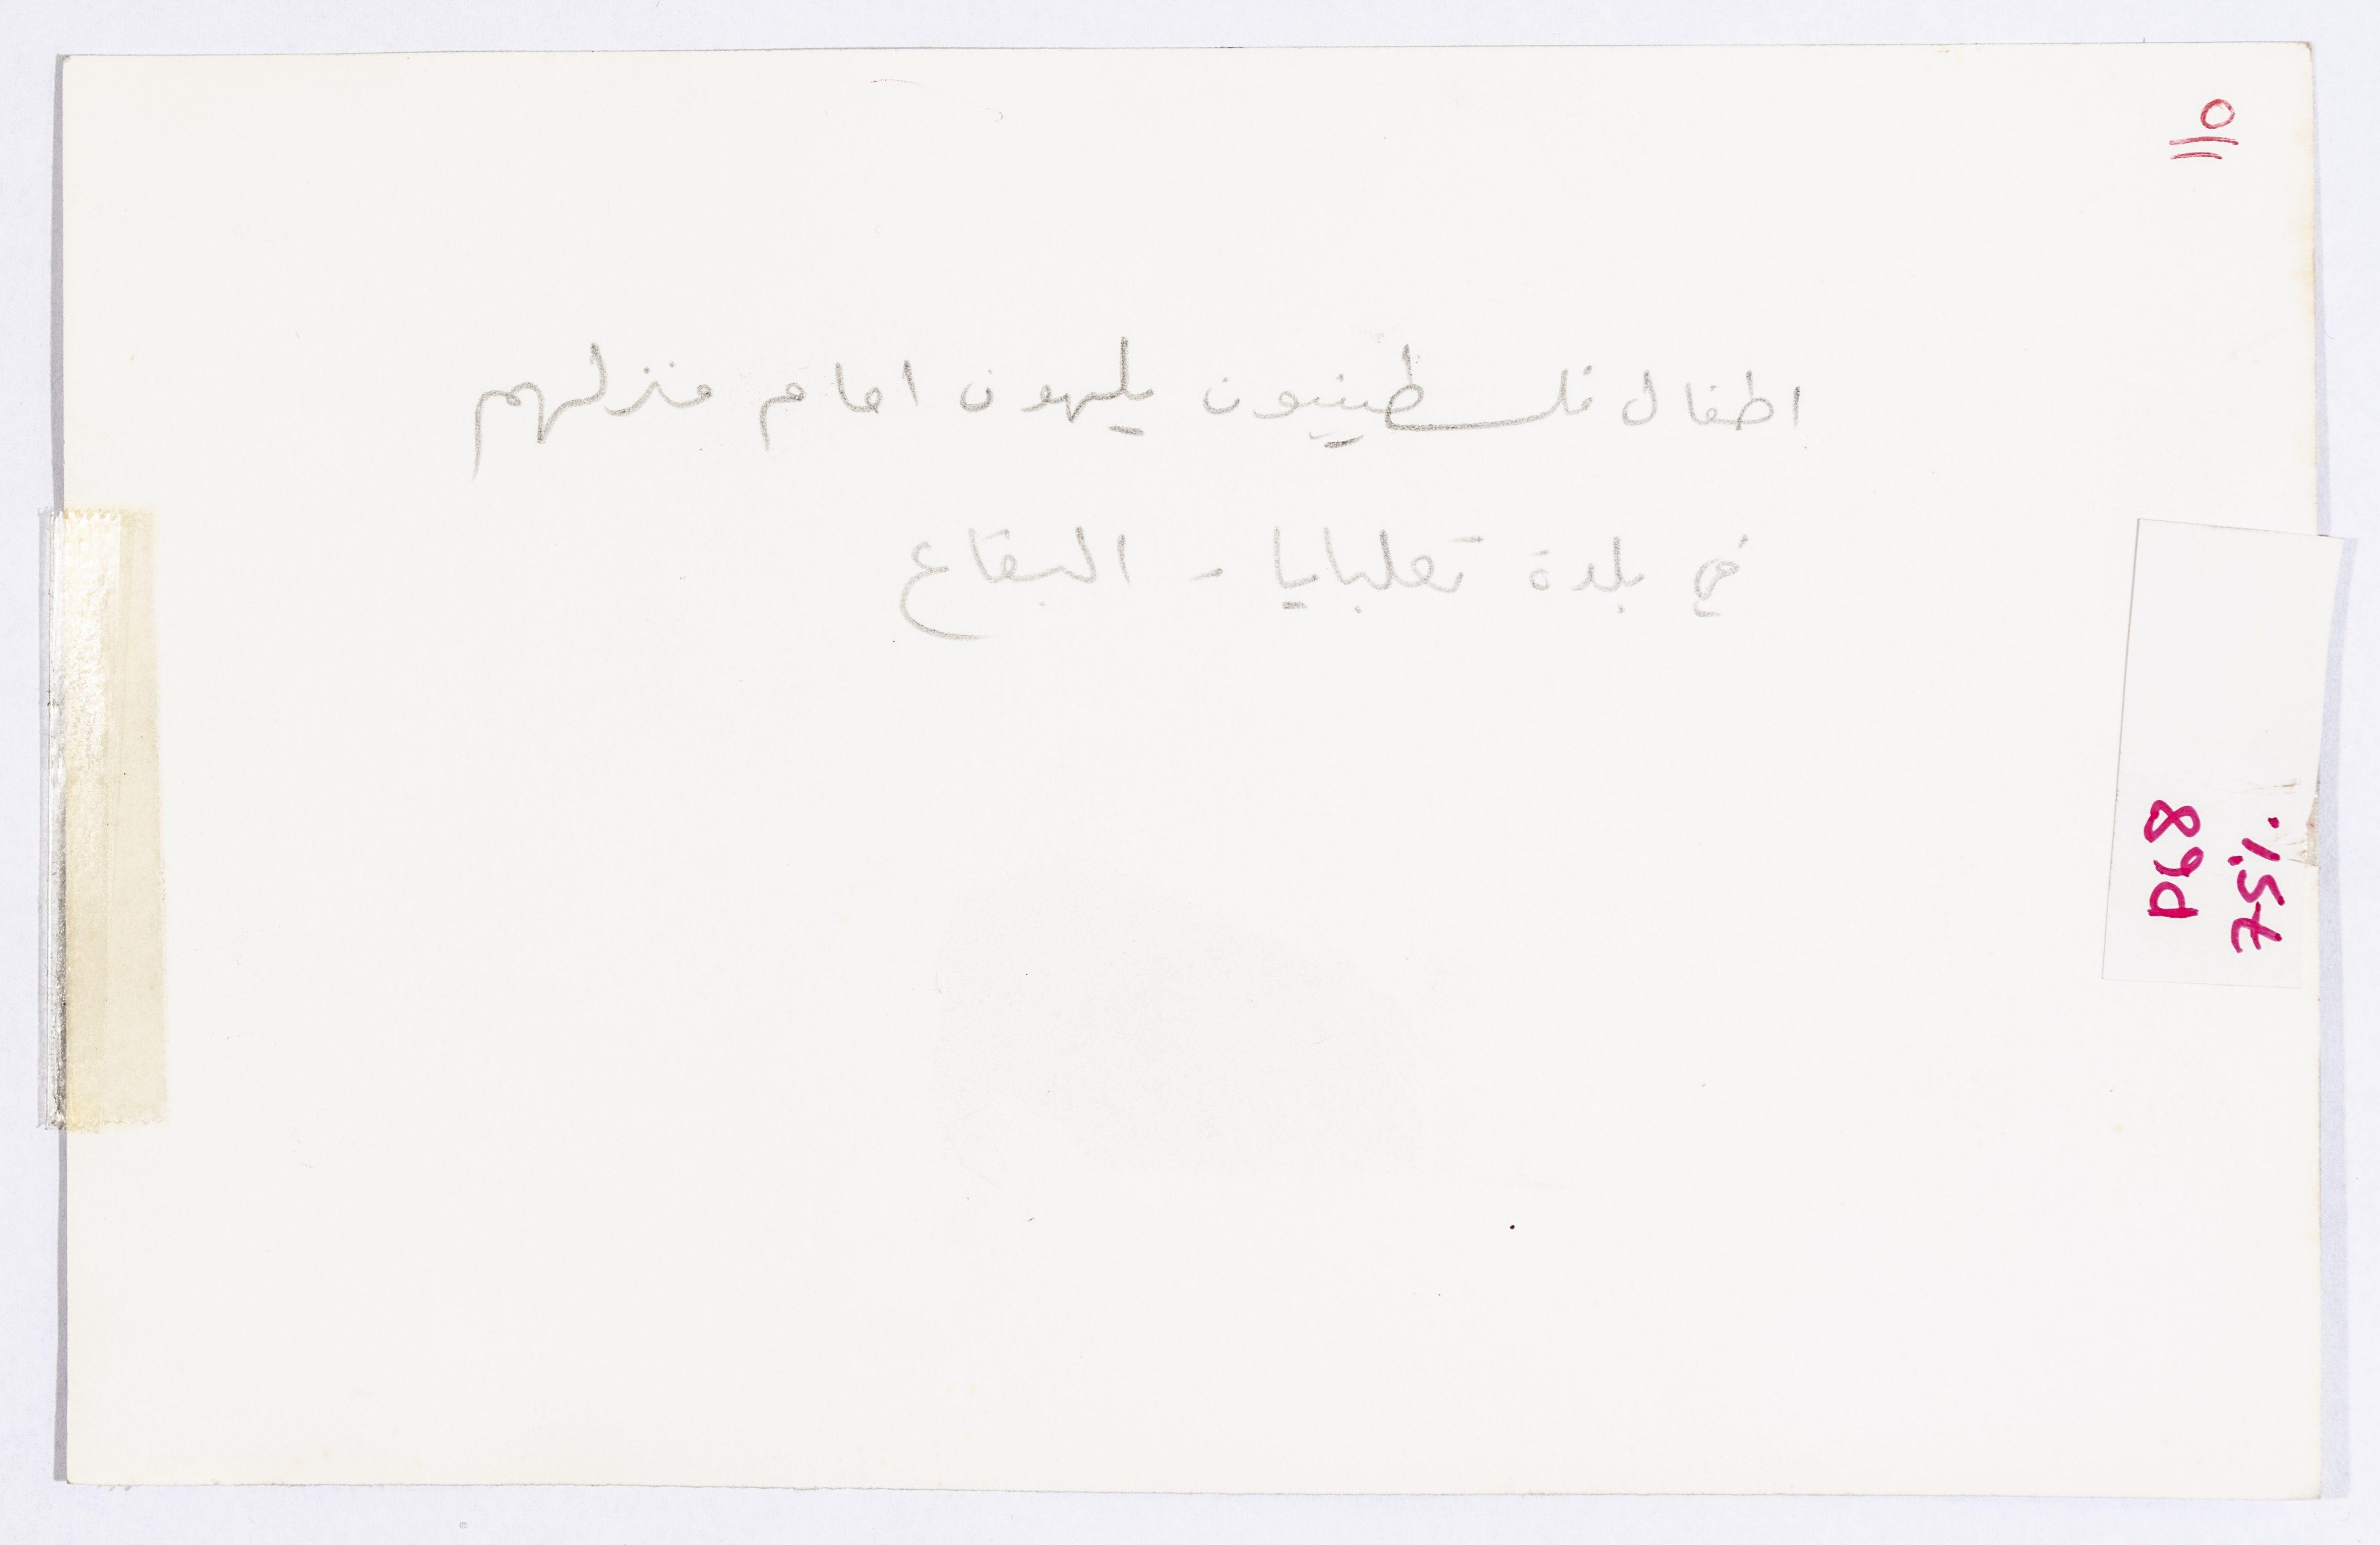 اطفال فلسطينيون يلهون امام منزلهم
في بلدة تعلبايا - البقاع
110
P68
75%